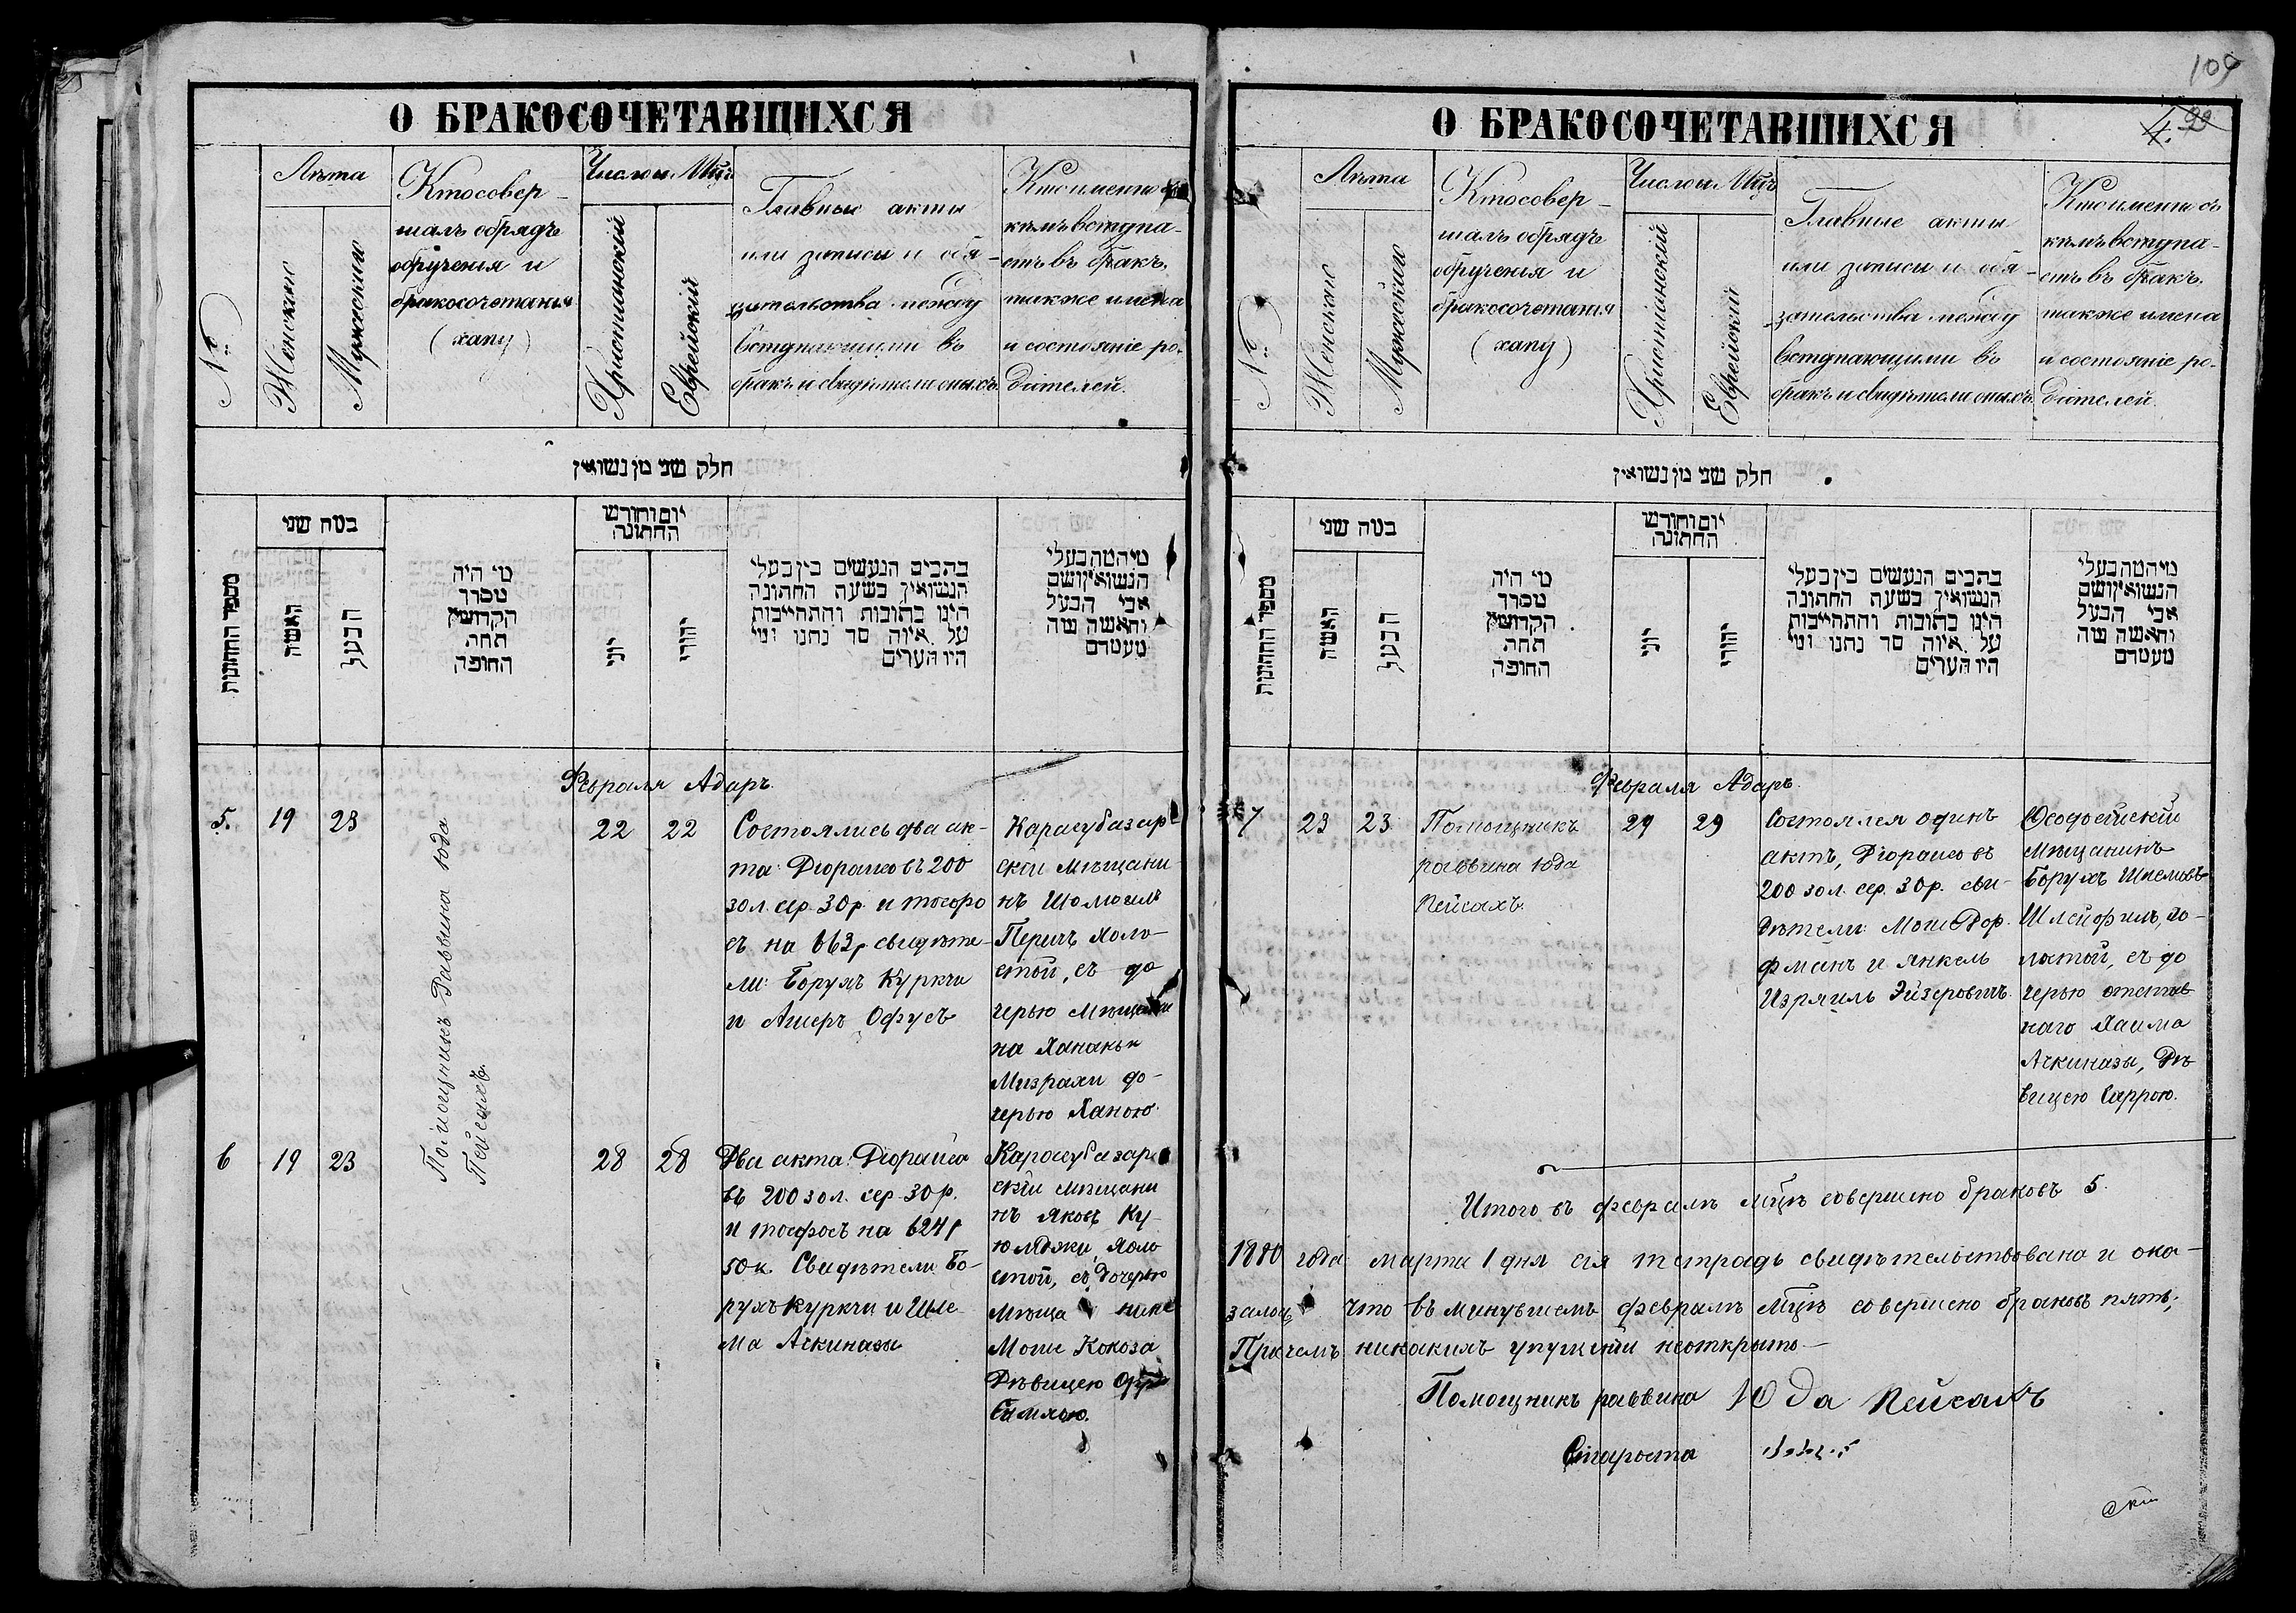 О БРАКОСОЧЕТАВШИХСЯ
№
Лѣта
Женскаго
Мужескаго
Кто совер-
шалъ обрядъ
обрученія и
бракосочетанія
(хапу)
Число и Мцъ
Христіанскій
Еврейскій
Главные акты
или записи и обя-
зательства между
вступающими въ
бракъ и свидѣтели оныхъ.
Кто именно съ
кѣмъ вступа-
етъ въ бракъ,
также имена
и состояніе ро-
дителей.
חלק שני מן נשואין
מספר החתונות
במה שני
האשה
הבעל
מי היה
מסדר
הקדושין
תחת
החופה
יום וחודש
החתונה
יוני
יהודי
בהבים הנעשים בין בעלי
הנשואין בשעה החתונה
היגו כתובות והתחייבות
על איזה סך נתנו ומי
היו העדים
מי המה בעלי
הנשואין ושם
אבי הבעל
והאשה מה
מעמדם
Февраля Адаръ
5. 19 23
Помощникъ Раввина Юда
Пейсахъ.
22 22
Состоялись два ак-
та: Дюраисо въ 200
зол. сер. 30 р. и тосфо
съ на 663 р. свидѣте-
ли: Борухъ Куркчи
и Ашеръ Офусъ
Карасубазар
скій мѣщани-
нъ Шомоель
Перичъ холо-
стой, съ до
черью мѣщани
на Хананья
Мизрахи до-
черью Ханою.
6 19 23
28 28
Два акта: Дюраисо
въ 200 зол. сер. 30 р.
и тосфосъ на 624 р
50 к. Свидѣтели: Бо-
рухъ Куркчи и Шле-
ма Ачкинази
Карасубазар
скій мѣщани
нъ Яковъ Ку-
юмджи, холо
стой, съ дочерью
мѣща нина
Моше Кокоза
Дѣвицею
Симхою.
109
4.
О БРАКОСОЧЕТАВШИХСЯ
№
Лѣта
Женскаго
Мужескаго
Кто совер-
шалъ обрядъ
обрученія и
бракосочетанія
(хапу)
Число и Мцъ
Христіанскій
Еврейскій
Главные акты
или записи и обя-
зательства между
вступающими въ
бракъ и свидѣтели оныхъ.
Кто именно съ
кѣмъ вступа-
етъ въ бракъ,
также имена
и состояніе ро-
дителей.
חלק שני מן נשואין
מספר החתונות
במה שני
האשה
הבעל
מי היה
מסדר
הקדושין
תחת
החופה
יום וחודש
החתונה
יוני
יהודי
בהבים הנעשים בין בעלי
הנשואין בשעה החתונה
היגו כתובות והתחייבות
על איזה סך נתנו ומי
היו העדים
מי המה בעלי
הנשואין ושם
אבי הבעל
והאשה מה
מעמדם
Февраля Адаръ.
7 23 23
Помощникъ
раввина Юда
Пейсахъ.
29 29
Состоялся одинъ
актъ, Дюраисо въ
200 зол. сер. 30 р. сви-
дѣтели: Моше Дор-
фманъ и Янкель
Изряиль Эйзеровичъ.
Ѳеодосійскій
мѣщанинъ
Борухъ
Шлейферъ, хо-
лостой, съ до
черью отстав
наго Хаима
Ачкинази, Дѣ-
вицею Саррою.
Итого въ февралѣ мцѣ совершено браковъ 5.
1880 года марта 1 дня сія тетрадь свидѣтельствована и ока-
залось что въ минувшемъ февралѣ мцѣ совершено браковъ пять;
Причемъ никакихъ упущеній неоткрыто-
Помощникъ раввина Юда Пейсахъ
Староста